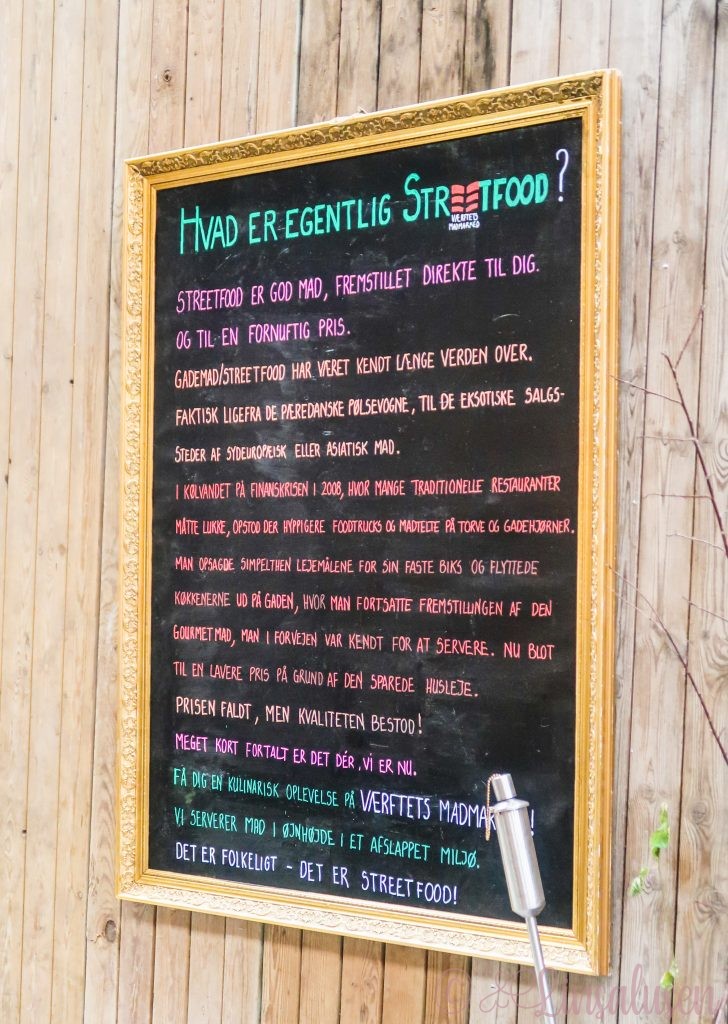 HVAD ER EGENTLIG STREETFOOD?
VÆRFTETS
MADMARKED
STREETFOOD ER GOD MAD, FREMSTILLET DIREKTE TIL DIG.
OG TIL EN FORNUFTIG PRIS.
GADEMAD/STREETFOOD HAR VÆRET KENDT LÆNGE VERDEN OVER.
FAKTISK LIGEFRA DE PÆREDANSKE PØLSEVOGNE, TIL DE EKSOTISKE SALGS-
STEDER AF SYDEUROPÆISK ELLER ASIATISK MAD.
I KØLVANDET PÅ FINANSKRISEN I 2008, HVOR MANGE TRADITIONELLE RESTAURANTER
MÅTTE LUKKE, OPSTOD DER HYPPIGERE FOODTRUCKS OG MADTELTE PÅ TORVE OG GADEHJØRNER.
MAN OPSAGDE SIMPELTHEN LEJEMÅLENE FOR SIN FASTE BIKS OG FLYTTEDE
KØKKENERNE UD PÅ GADEN, HVOR MAN FORTSATTE FREMSTILLINGEN AF DEN
GOURMETMAD, MAN I FORVEJEN VAR KENDT FOR AT SERVERE. NU BLOT
TIL EN LAVERE PRIS PÅ GRUND AF DEN SPAREDE HUSLEJE.
PRISEN FALDT, MEN KVALITETEN BESTOD!
MEGET KORT FORTALT ER DET DÉR, VI ER NU.
FÅ DIG EN KULINARISK OPLEVELSE PÅ VÆRFTETS MADMAR !
VI SERVERER MAD I ØJNHØJDE I ET AFSLAPPET MILJØ.
DET ER FOLKELIGT - DET ER STREETFOOD!